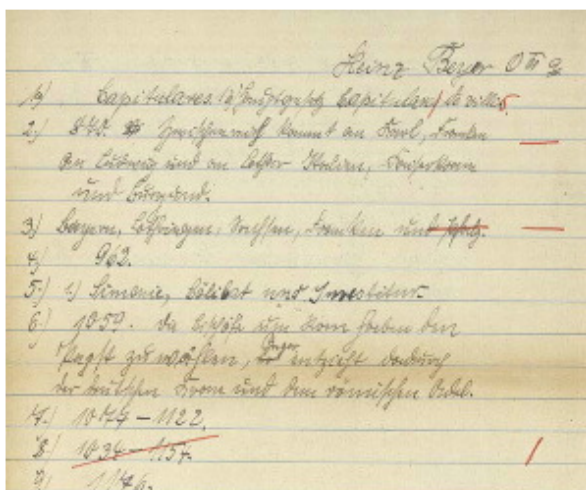 Heinz Beyer O III a
1) Capitulares
2.) 870. kommt an Karl, Franken
an Ludwig und an Lothar Italien,
und Burgund.
3) Bayern, Lothringen, Sachsen, Franken und
4) 962.
5.) 1.) Simonie, Cölibat und Investitur.
6.) 1059. Die Bischöfe um Rom haben den
Papst zu wählen, entzieht dadurch
der deutschen Krone und dem römischen Adel.
7.) 1077 – 1122.
8.) – 1157.
9) 1176.